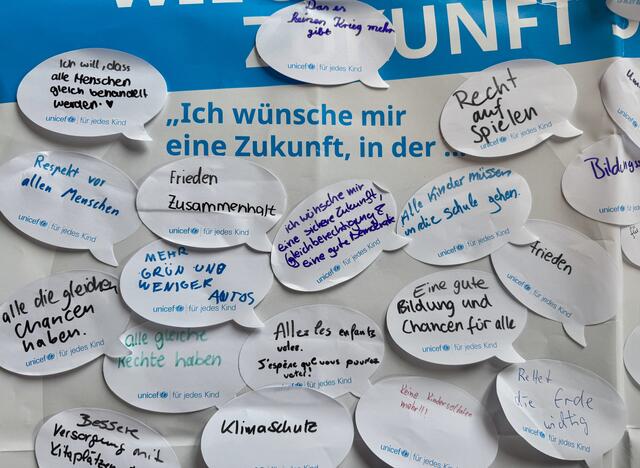 ZUKUNFT S
Das es
keinen Krieg mehr
gibt
unicef | für jedes Kind
Ich will, dass
alle Menschen
gleich behandelt
werden. ♥
unicef | für jedes Kind
Recht
auf
spielen
unicef | für jedes Kind
„Ich wünsche mir
eine Zukunft, in der ...
Respekt vor
allen Menschen
unicef | für jedes Kind
Frieden
Zusammenhalt
unicef | für jedes Kind
ich wünsche mir
eine sichere Zukunft
gleichberechtigung &
eine gute Demokratie
unicef | für jedes Kind
Alle Kinder müssen
in die schule gehen.
unicef | für jedes Kind
Bildung
unicef
Frieden
unicef | für jedes Kind
MEHR
GRÜN UND
WENIGER
AUTOS
unicef | für jedes Kind
alle die gleichen
Chancen
haben.
unicef | für jedes Kind
alle gleiche
Rechte haben
unicef | für jedes Kind
Allez les enfants
votez.
J'espère que vous pouvez
voter!
unicef | für jedes Kind
Eine gute
Bildung und
Chancen für alle
unicef | für jedes Kind
Rettet
die Erde
wichtig
unicef | für jedes Kind
Bessere
Versorgung mit
Kitaplätzen
Klimaschutz
unicef | für jedes Kind
Keine Kindersoldaten
mehr!!!
unicef | für jedes Kind